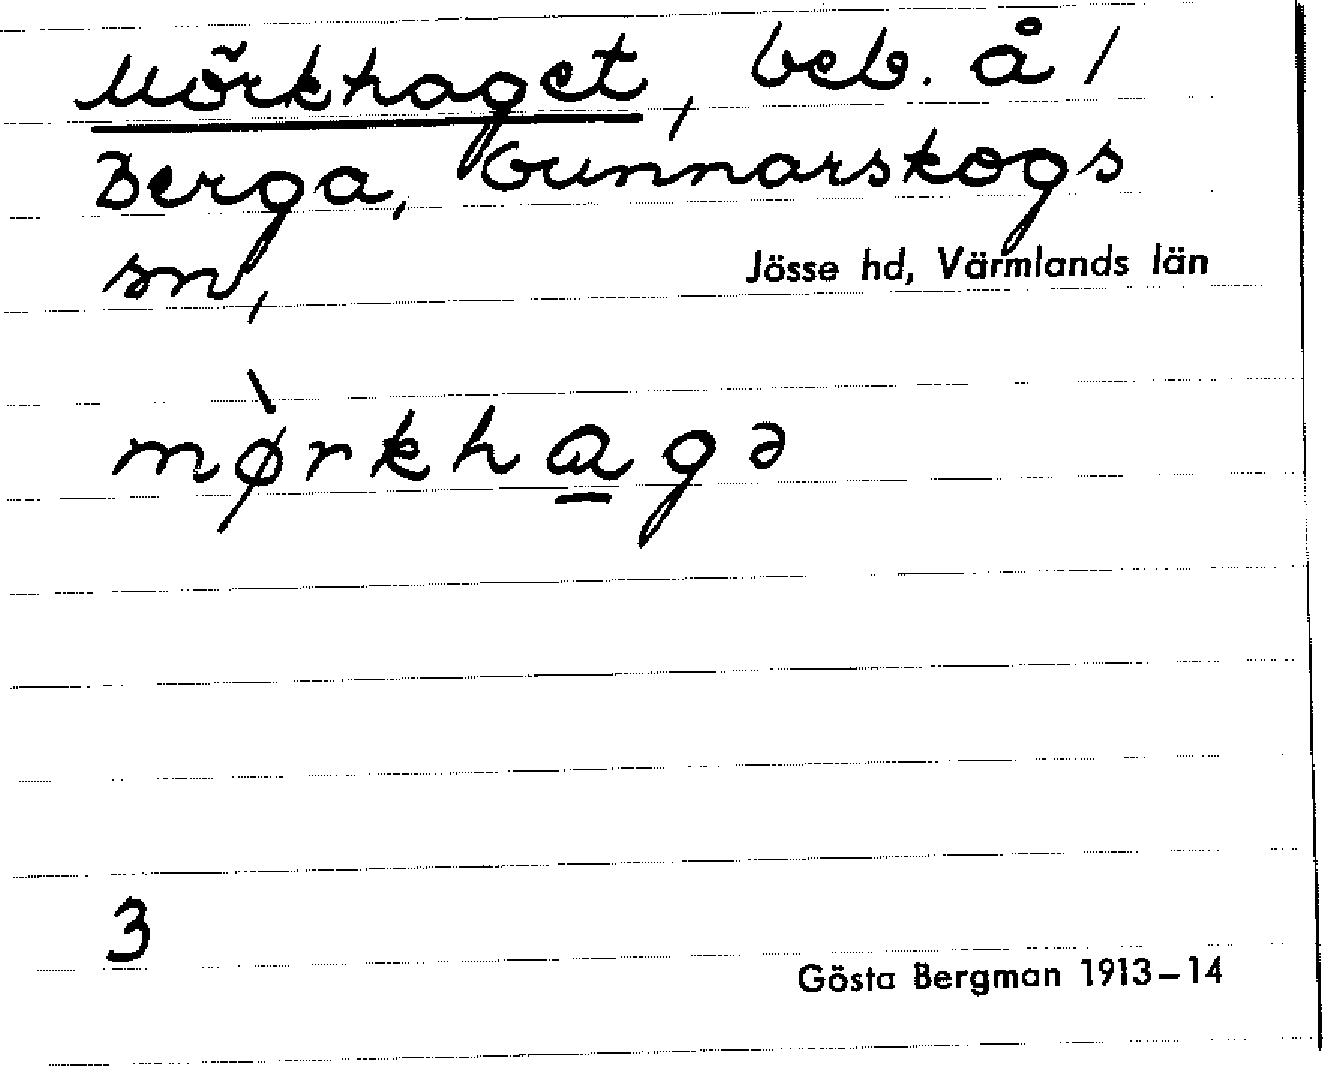 Mörkhaget, beb. å /
Berga, Gunnarskogs
sn, Jösse hd, Värmlands län
mø̀rkhagə
3
Gösta Bergman 1913–14